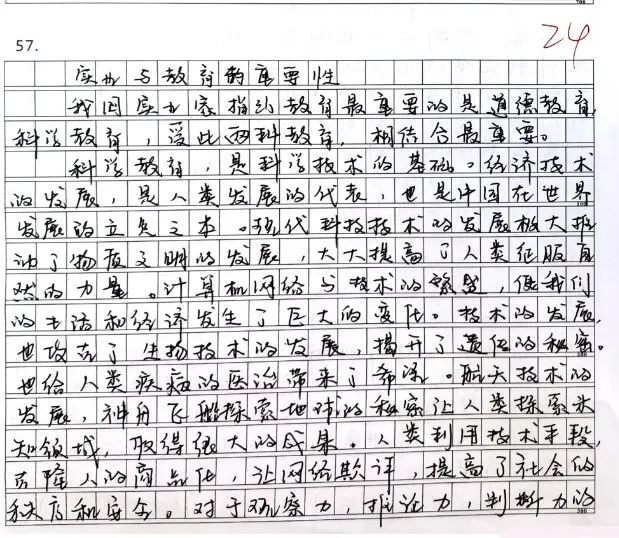 57.
24
实业与教育的重要性
我国实业家指出教育最重要的是道德教育,
科学教育,爱此两科教育,相结合最重要。
科学教育,是科学技术的基础。经济技术
的发展,是人类发展的代表,也是中国在世界
发展的立足之本。现代科技技术的发展极大推
动了物质文明的发展,大大提高了人类征服自
然的力量。计算机网络与技术的繁盛,使我们
的生活和经济发生了巨大的变化。技术的发展,
也攻克了生物技术的发展,揭开了遗传的秘密。
也给人类疾病的医治带来了希望。航天技术的
发展,神舟飞船探索地球的秘密让人类探索未
知领域,取得很大的成果。人类利用技术手段,
克隆人的商品化,让网络欺诈,提高了社会的
秩序和安全。对于观察力,推论力,判断力的